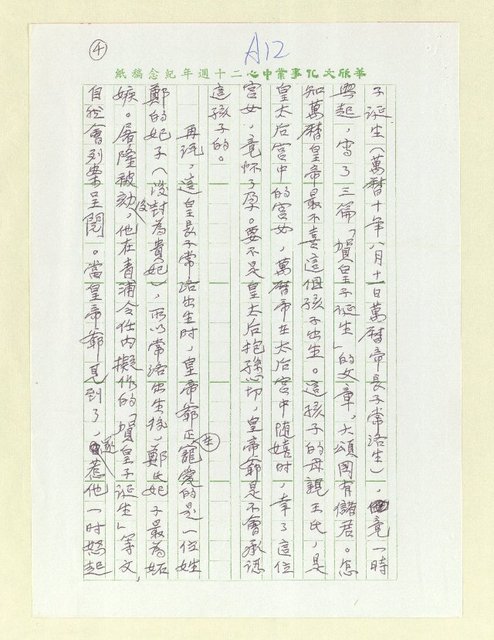 ④
A12
華欣文化事業中心二十週年紀念稿紙
子誕生(萬曆十年八月十一日萬曆帝長子常洛生),竟一時
興起,寫了三篇「賀皇子誕生」的文章,大頌國有儲君。怎
知萬曆皇帝最不喜這個孩子出生。這孩子的母親王氏,是
皇太后宮中的宮女,萬曆帝在太后宮中隨嬉時,幸了這位
宮女,竟怀了孕。要不是皇太后抱孫心切,皇帝爺是不會承認
這孩子的。
再說,這皇長子常洛出生時,皇帝爺正在寵愛的是一位姓
鄭的妃子(後封為貴妃),所以常洛出生後,鄭氏妃子最為妬
嫉。屠隆被劾後,他在青浦令任內擬作的「賀皇子誕生」等文,
自然會列案呈閱。當皇帝爺見到了,遂惹他一時怒起